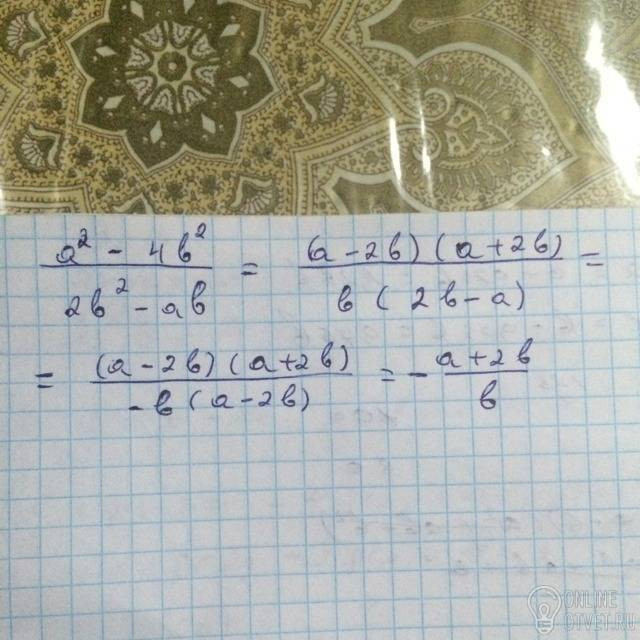 (a² - 4b²)/(2b² - ab) = ((a - 2b)(a + 2b))/(b(2b - a)) =
= ((a - 2b)(a + 2b))/(-b(a - 2b)) = - (a + 2b)/b
ONLINE
OTVET.RU